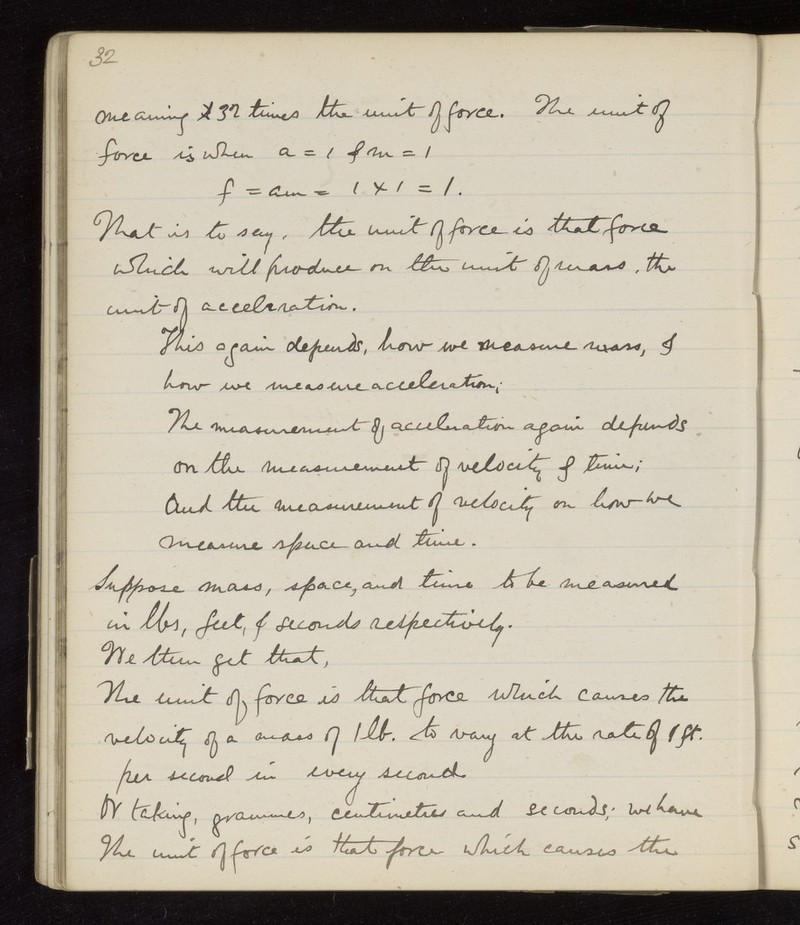 32
meaning 32 times the unit of force. The unit of
force is when a = 1 & m = 1
f = am = 1 × 1 = 1.
That is to say, the unit of force is that force
which will produce on the unit of mass, the
unit of acceleration.
This again depends, how we measure mass, &
how we measure acceleration;
The measurement of acceleration again depends
on the measurement of velocity & time;
And the measurement of velocity on how we
measure space and time.
Suppose mass, space, and time to be measured
in lbs, feet, & seconds respectively.
We then get that,
The unit of force is that force which causes the
velocity of a mass of 1 lb. to vary at the rate of 1 ft.
per second in every second
Or taking, grammes, centimetres and seconds; we have
The unit of force is that force which causes the